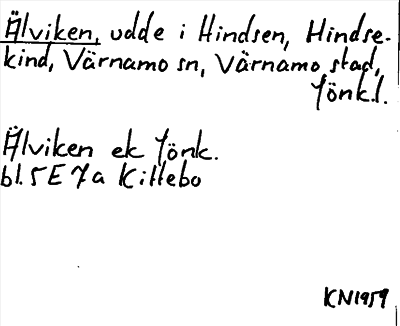 Älviken, udde i Hindsen, Hindse-
kind, Värnamo sn, Värnamo stad,
Jönk.l.
Älviken ek Jönk.
bl. 5 E 7 a Killebo
KN1959